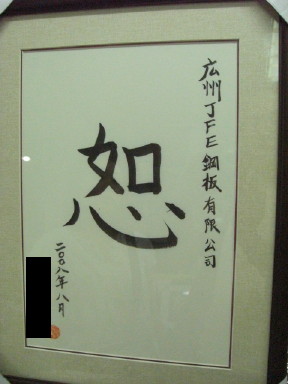 広州JFE鋼板有限公司
恕
二〇〇八年八月